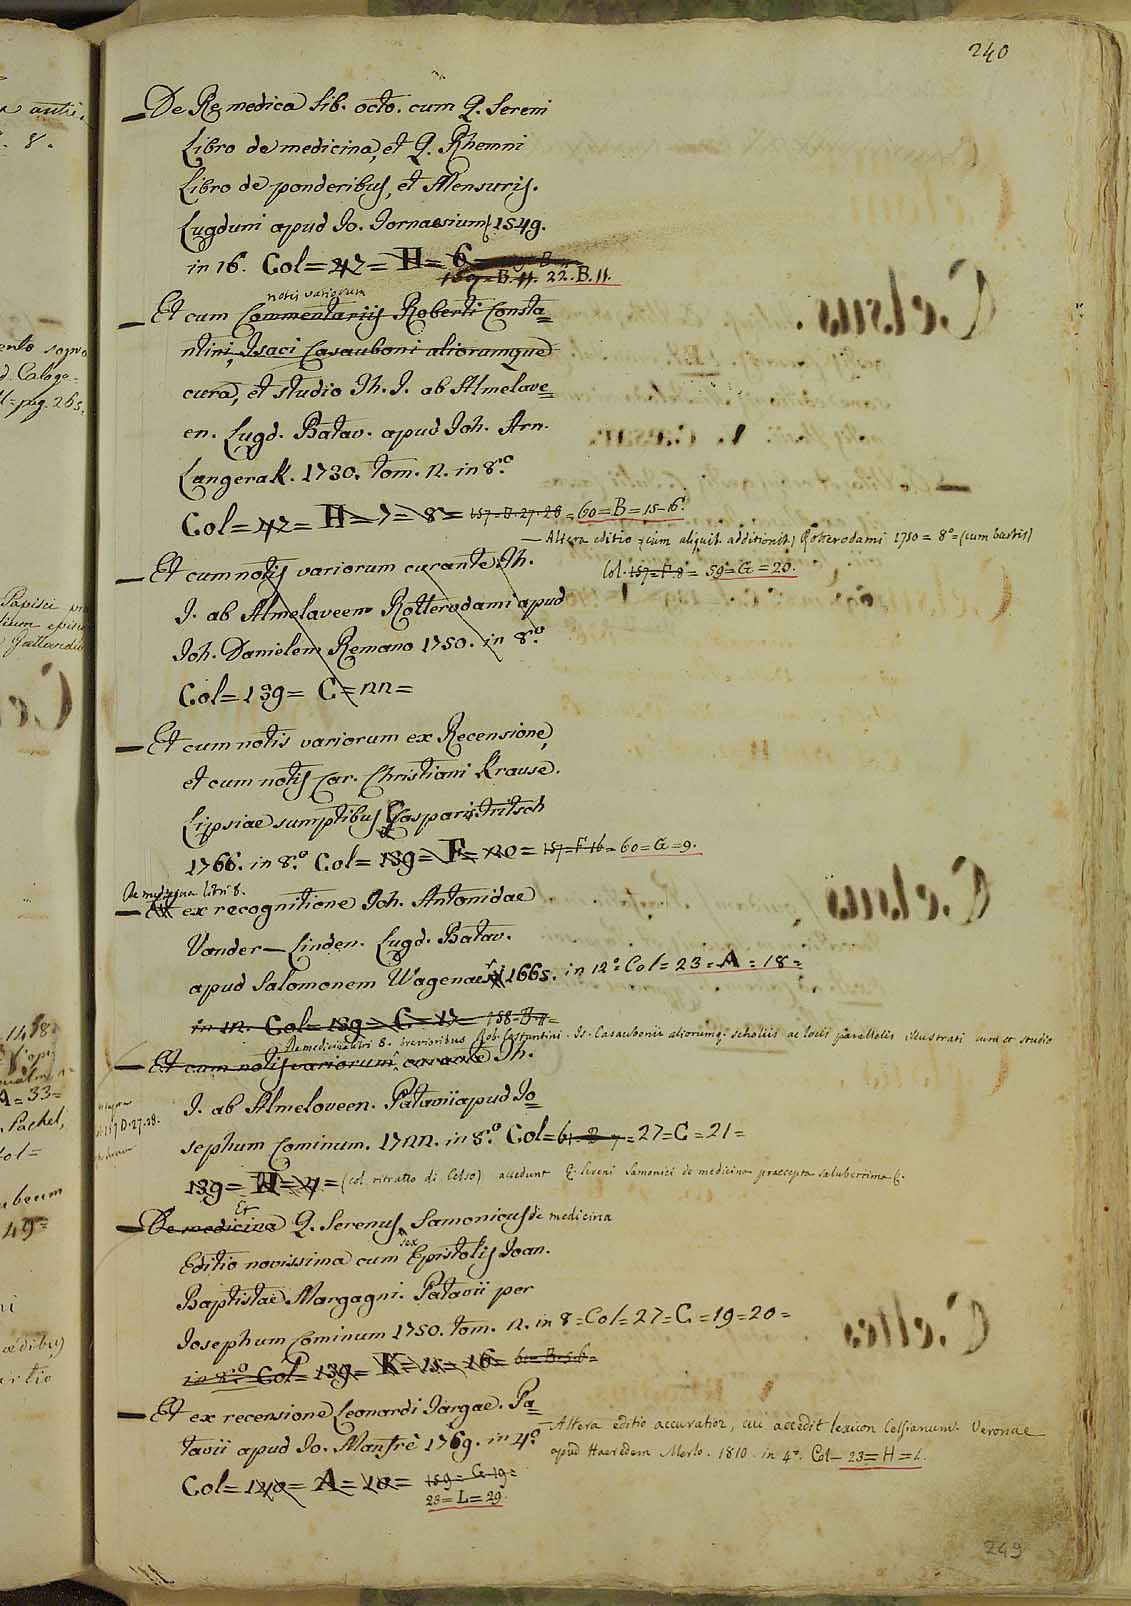 240
— De Re medica lib. octo. cum Q. Sereni
Libro de medicina, et Q. Rhemni
Libro de ponderibus, et Mensuris.
Lugduni apud Jo. Tornaesium 1549.
in 16. Col= 42= H= 6
B. 11. 22. B. 11.
notis variorum
— Et cum Commentariis Roberti Consta=
ntini, Isaci Casauboni aliorumque
cura, et studio Th. J. ab Almelave=
en. Lugd. Batav. apud Joh. Arn.
Langerak. 1730. tom. 2. in 8.º
Col= 42= H= 7= 8= 157=D=27-28= 60=B=15-16.
— Altera editio (cum aliquib. additionib.) Roterodami 1750= 8º= (cum bustis)
Col. 157=F.8= 59=G=20.
— Et cum notis variorum curante Th.
J. ab Almelaveen Rotterodami apud
Joh. Danielem Remano 1750. in 8.º
Col= 139= C= 22=
— Et cum notis variorum ex Recensione,
et cum notis Car. Christiani Krause.
Lipsiae sumptibus Gasparis Fritsch
1766. in 8.º Col= 139= F= 20= 157=F-16= 60=G=9.
De medicina libri 8.
— ex recognitione Joh. Antonidae
Vander—Linden. Lugd. Batav.
apud Salomonem Wagenaer 1665. in 12º Col= 23= A= 18=
in 12. Col= 139= C= 17= 158-B-11=
De medicina libri 8. brevioribus Rob. Costantini. Is. Casauboni aliorumq; scholiis ac locis parallelis illustrati cura et studio
— Et cum notis variorum, curante Th.
J. ab Almeloveen. Patavii apud Jo
sephum Cominum. 1722. in 8.º Col= 61-B-7= 27=C=21=
139= H= 4= (col ritratto di Celso) accedunt Q. Sereni Samonici de medicina praecepta saluberrima
Et
— De medicina Q. Serenus Samonicus de medicina
sex
Editio novissima cum Epistolis Joan.
Baptistae Margagni. Patavii per
Josephum Cominum 1750. tom. 2. in 8= Col= 27= C= 19=20=
in 8.º Col= 139= K= 15= 16= 61=B-5.6=
— Et ex recensione Leonardi Targae. Pa=
tavii apud Jo. Manfrè 1769. in 4.º
Col= 120= A= 10= 159= G-19=
23= L= 29.
— Altera editio accuratior, cui accedit lexicon Celsianum. Veronae
apud Haeredem Merlo. 1810. in 4º. Col— 23= H= 1.
249